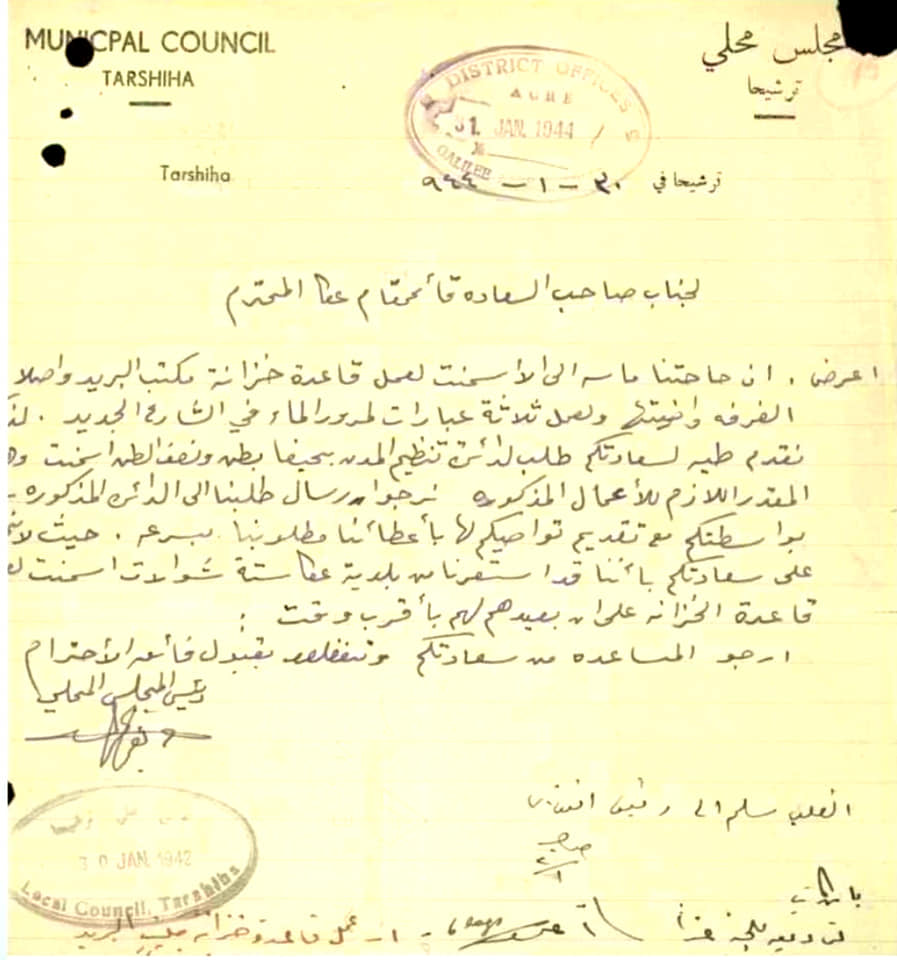 MUNICPAL COUNCIL
TARSHIHA
مجلس محلي
ترشيحا
DISTRICT OFFICES
ACRE
31 JAN. 1944
GALILEE
Tarshiha
ترشيحا في ٣٠ - ١ - ٩٤٤
لجناب صاحب السعاده قائمقام عكا المحترم
اعرض . ان حاجتنا ماسه الى الأسمنت لعمل قاعدة خزانة مكتب البريد واصلا
الغرفه ولعمل ثلاثة عبارات لمرور الماء في الشارع الجديد .
نقدم طيه لسعادتكم طلب لدائرة تنظيم المدن بحيفا بطن ونصف الطن اسمنت
المقدر اللازم للأعمال المذكوره نرجو ارسال طلبنا الى الدائرة المذكوره
بواسطتكم مع تقديم تواصيكم لها بأعطائنا مطلوبنا بسرعه . حيث
على سعادتكم بأننا قد استقرنا من بلدية عكا ستة شوالات اسمنت
قاعدة الخزانه على ان نعيدهم لهم بأقرب وقت :
ارجو المساعده من سعادتكم وتفضلوا بقبول فائق الأحترام
رئيس المجلس المحلي
الطلب سلم الى رئيس
30 JAN. 1942
Local Council, Tarshiha
عمل قاعدة خزانة البريد